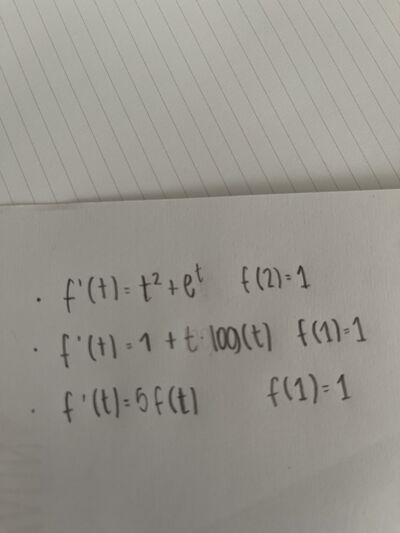 · f'(t) = t² + e^t f(2) = 1
· f'(t) = 1 + t · log(t) f(1) = 1
· f'(t) = 5 f(t) f(1) = 1